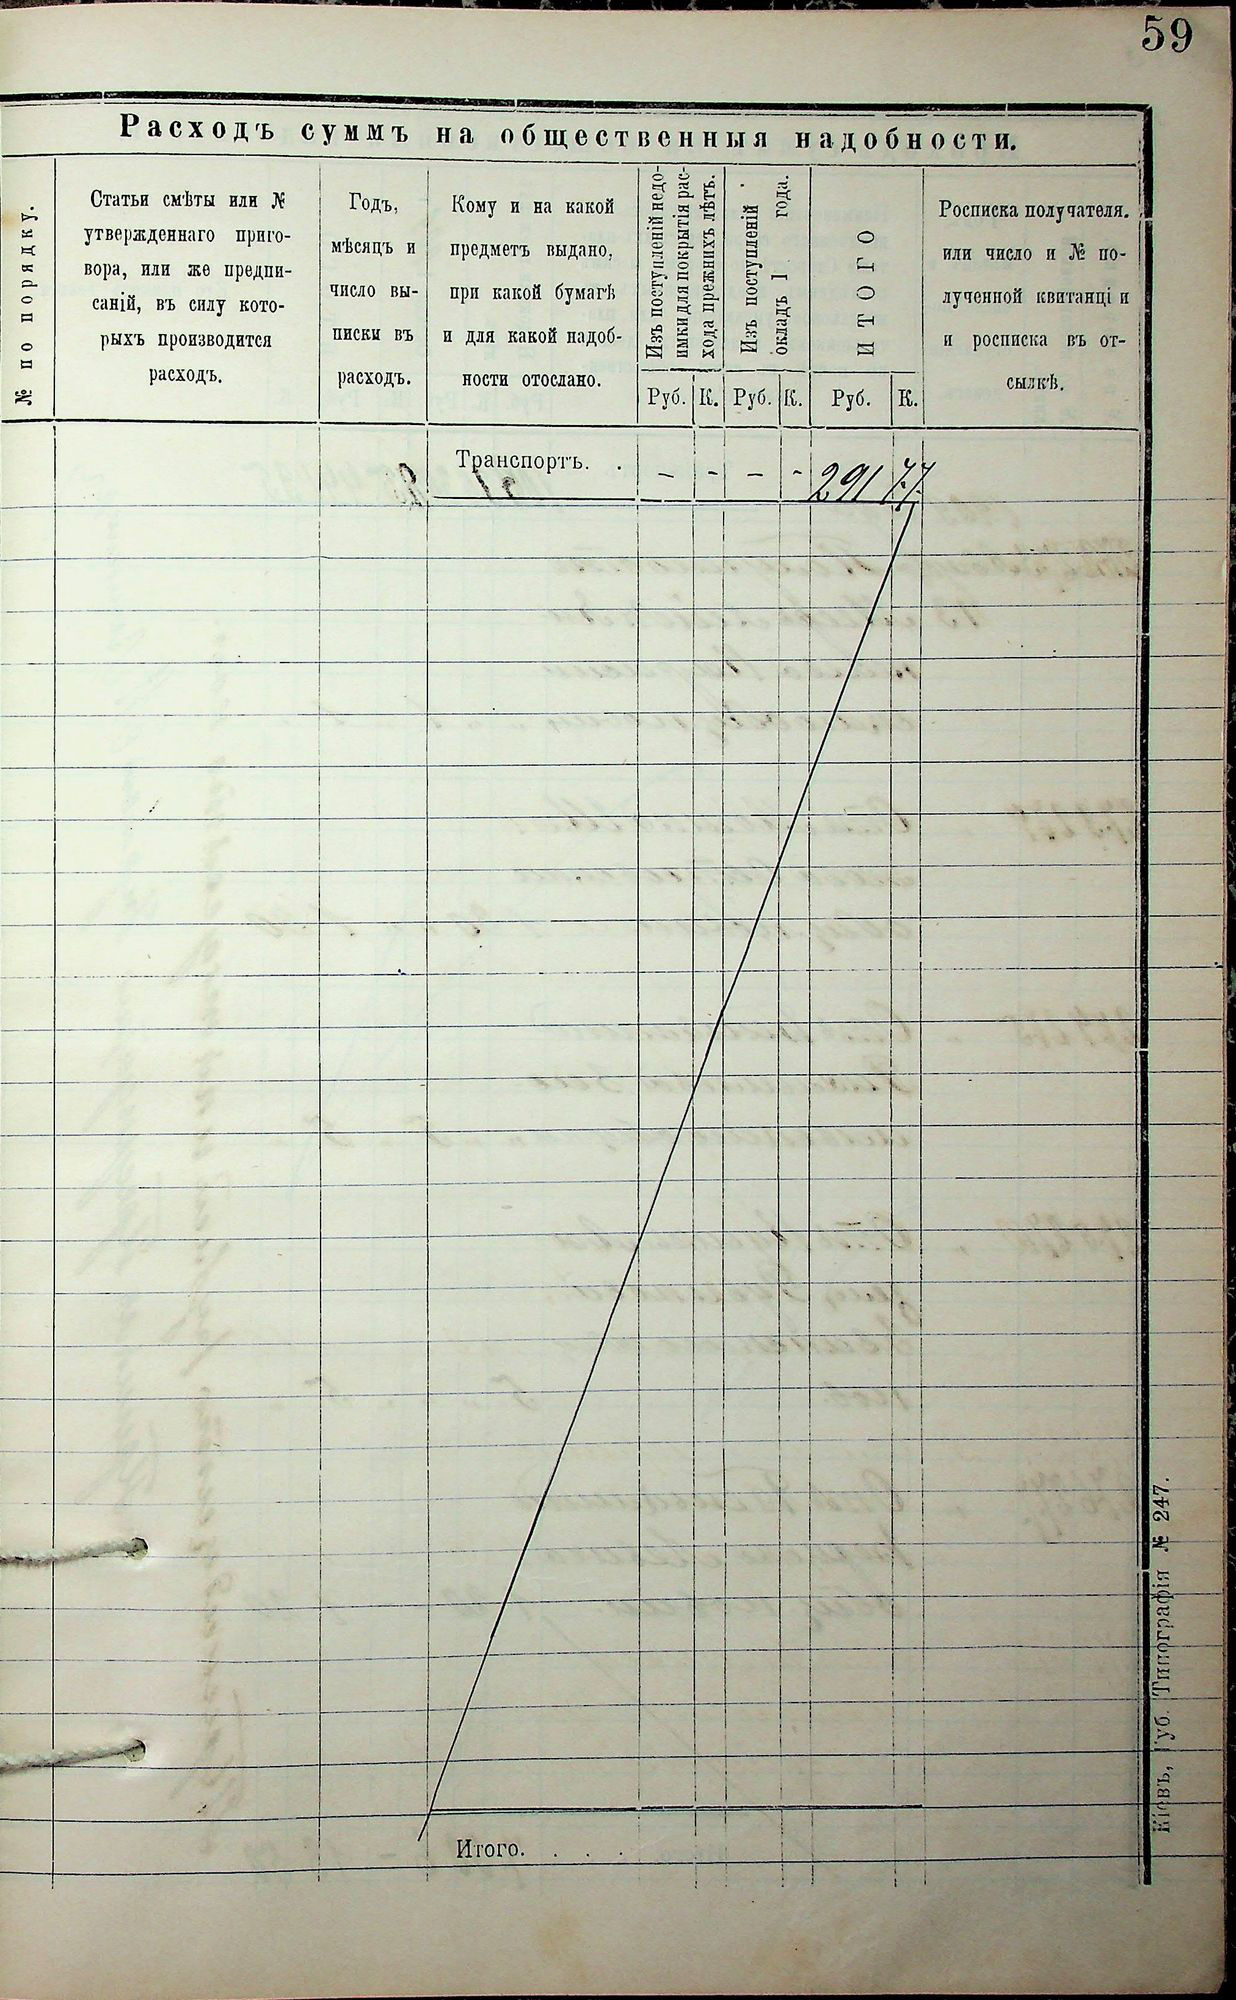 59
Расходъ суммъ на общественныя надобности.
№ по порядку.
Статьи смѣты или №
утвержденнаго приго-
вора, или же предпи-
саній, въ силу кото-
рыхъ производится
расходъ.
Годъ,
мѣсяцъ и
число вы-
писки въ
расходъ.
Кому и на какой
предметъ выдано,
при какой бумагѣ
и для какой надоб-
ности отослано.
Изъ поступленій недо-
имки для покрытія рас-
хода прежнихъ лѣтъ.
Изъ поступленій
окладъ 1 года.
ИТОГО
Росписка получателя.
или число и № по-
лученной квитанці и
и росписка въ от-
сылкѣ.
Руб. К. Руб. К. Руб. К.
Транспортъ. . – – – – 291 77
Итого. . . . .
Кіевъ, Губ. Типографія № 247.